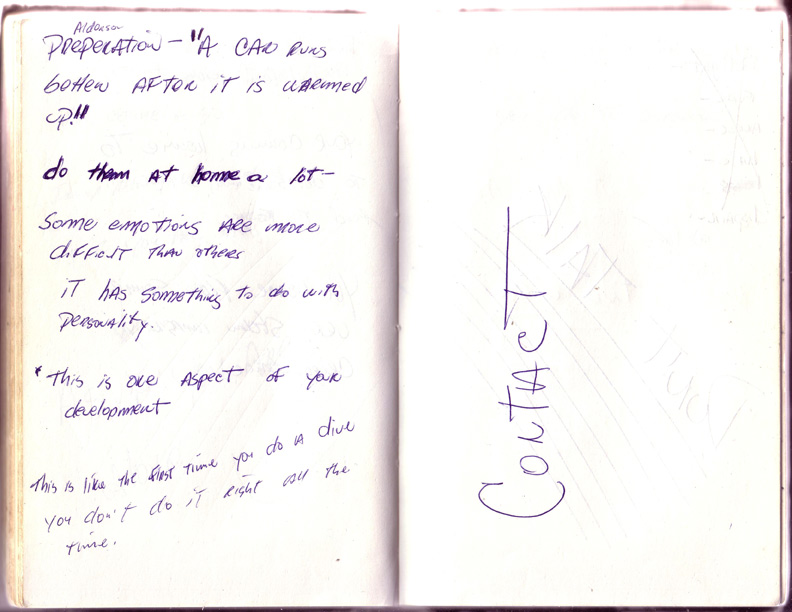 Alderson
PREPERATION - "A CAR RUNS
better AFTER iT iS WARMED
UP!"
do them AT home a lot -
Some emotions ARE more
difficiT THAN others
iT HAS Something to do with
PERSONALiTy.
* This is one Aspect of your
development
This is like the first time you do A dive
you don't do iT Right all the
time.
CONTACT